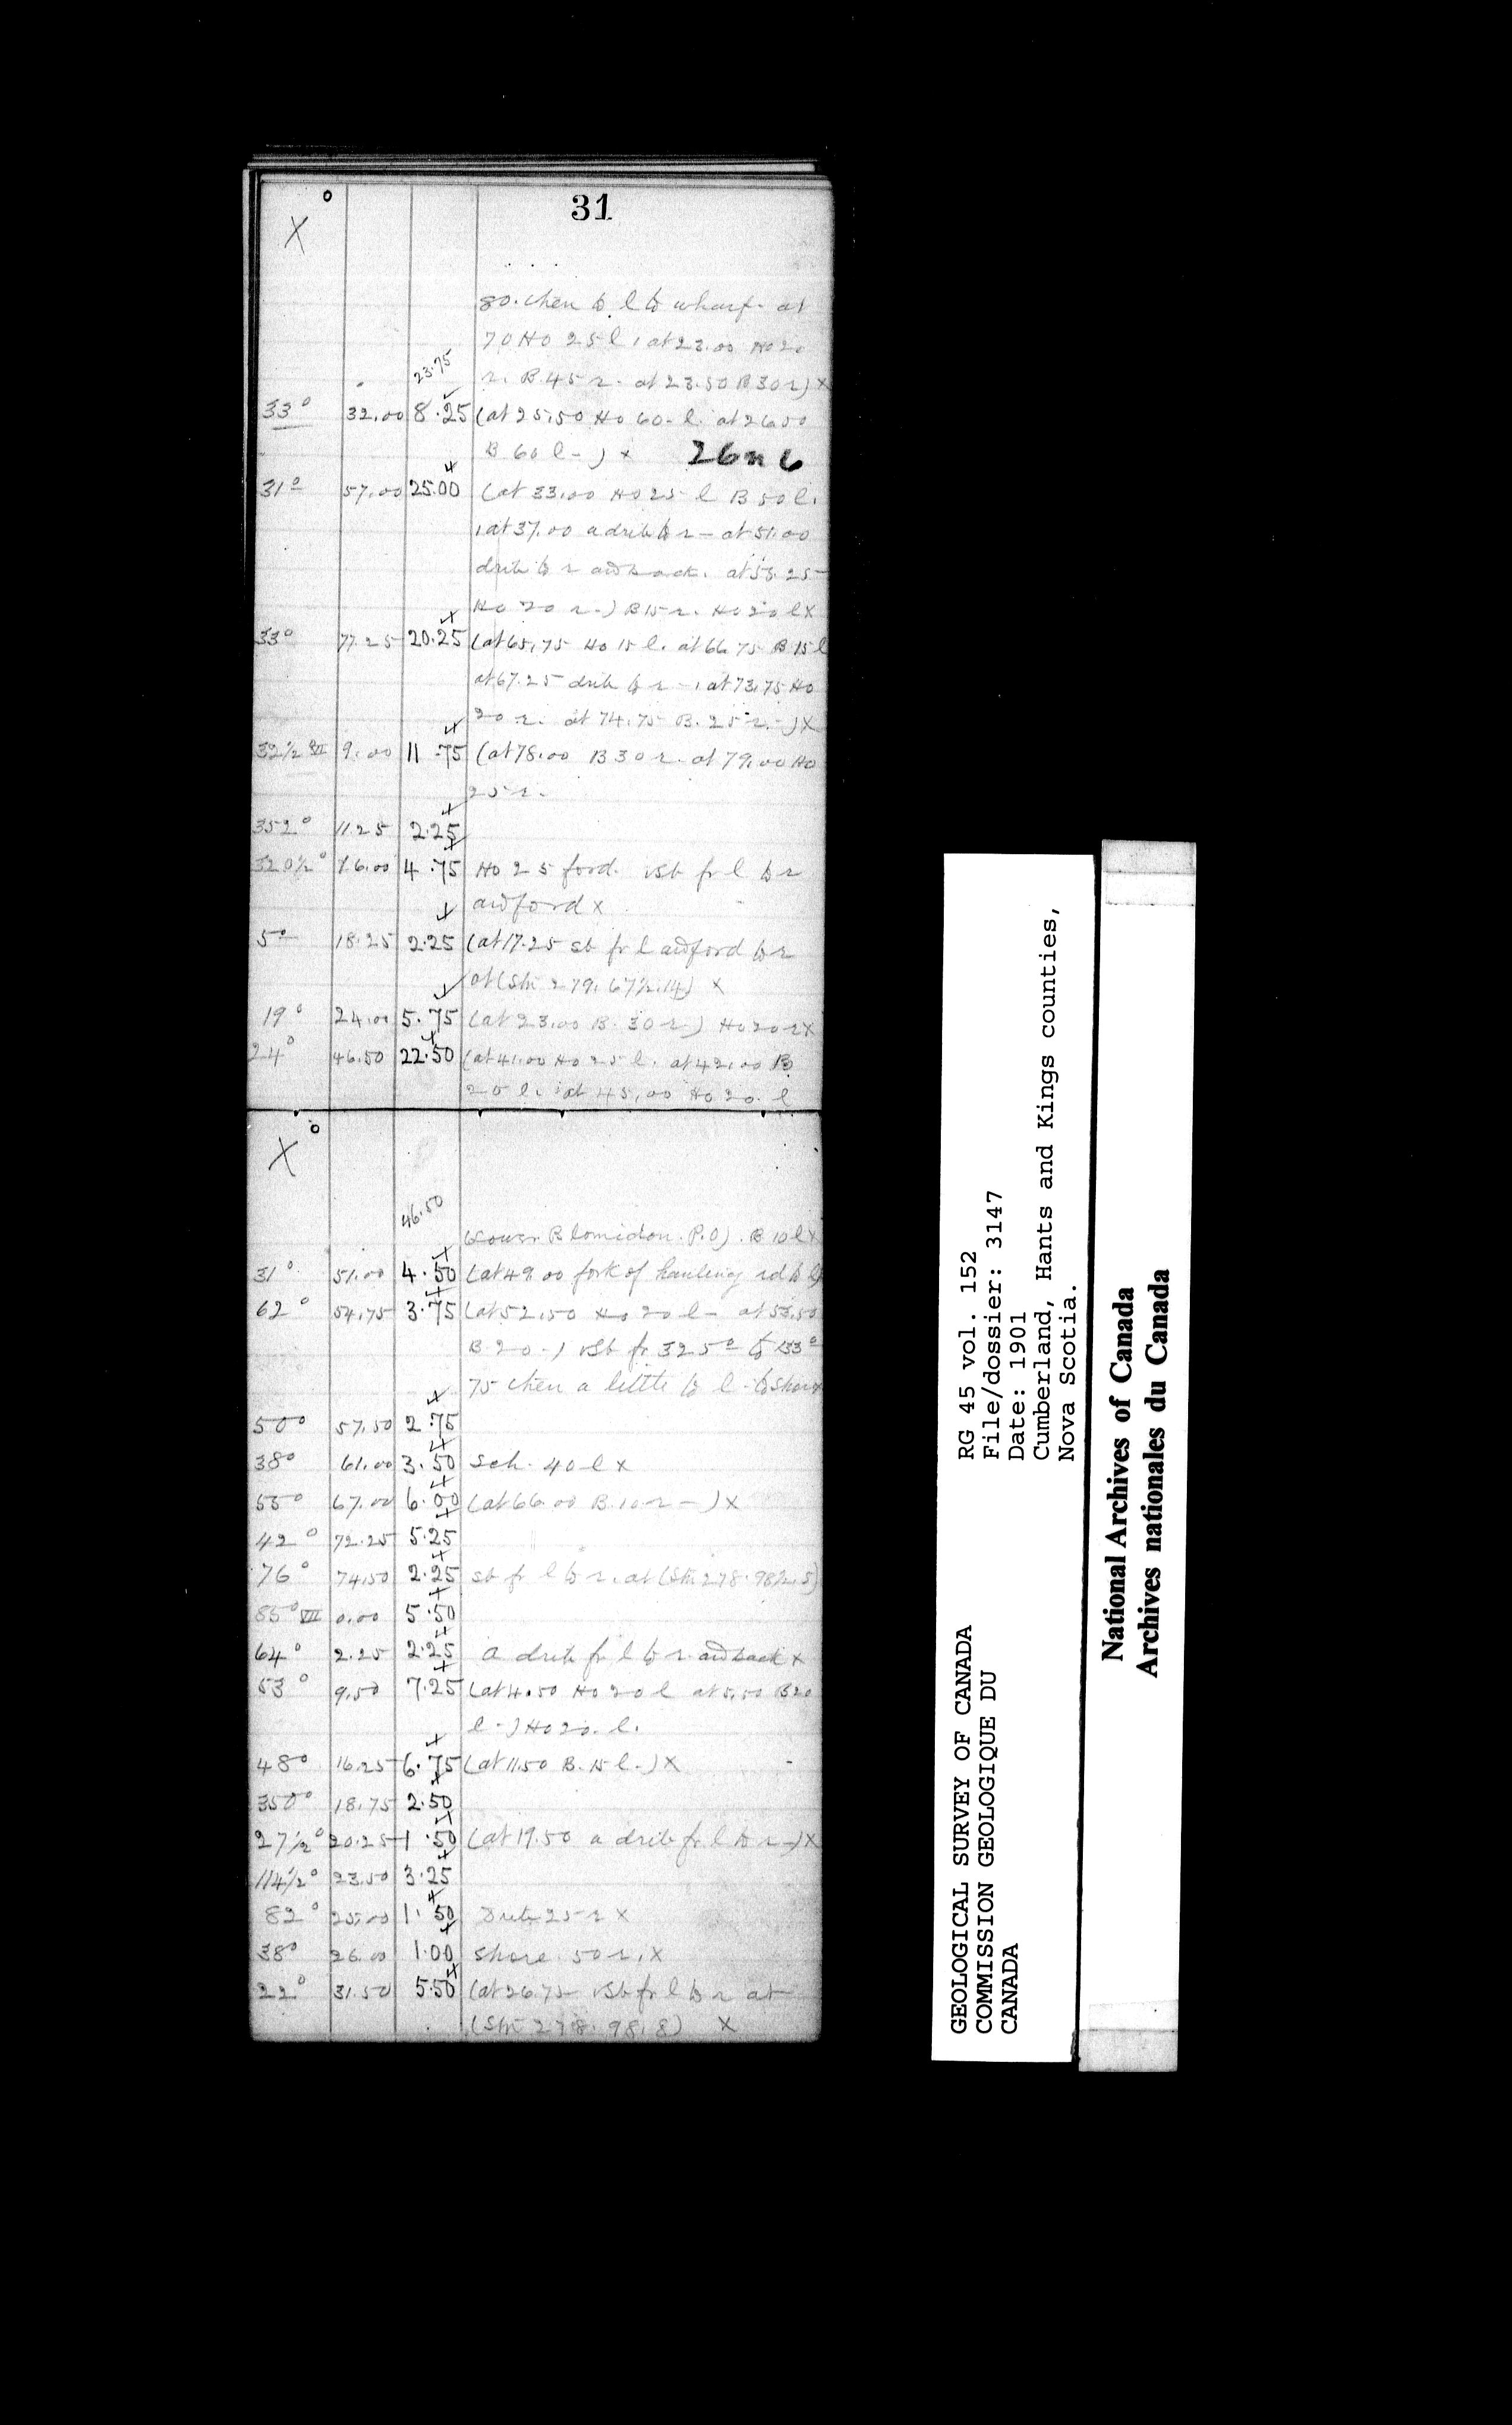 31
X °
80. then to l to wharf. at
70 Ho 25 l, at 23.00 Ho 20
23.75 r. B. 45 r. at 23.50 B 30 r) x
33° 32.00 8.25 (at 25.50 Ho 60 l. at 26.50
B 60 l - ) x 26 n 6
31° 57.00 25.00 (at 33.00 Ho 25 l B 50 l.
, at 37.00 a drib to r - at 51.00
drib to r and back. at 53.25
Ho 20 r.) B 15 r. Ho 20 l X
33° 77.25 20.25 (at 65.75 Ho 15 l. at 66.75 B 15 l
at 67.25 drib to r -, at 73.75 Ho
20 r. at 74.75 B. 25 r. -) X
32½ VI 9.00 11.75 (at 78.00 B 30 r. at 79.00 Ho
25 r.
352° 11.25 2.25
320½° 16.00 4.75 Ho 25 ford. vsb fr l to r
and ford x
5° 18.25 2.25 (at 17.25 sb fr l and ford to r
at (Stn 279. 67½.14) X
19° 24.00 5.75 (at 23.00 B. 30 r) Ho 20 r X
24° 46.50 22.50 (at 41.00 Ho 25 l. at 42.00 B
20 l. at 45.00 Ho 20. l
X °
46.50 (Lower Blomidon. P.O). B 10 l x
31° 51.00 4.50 (at 49.00 fork of hauling rd to l)
62° 54.75 3.75 (at 52.50 Ho 20 l - at 53.50
B. 20 -) vsb fr 325° to 133°
75 then a little to l - to shore x
50° 57.50 2.75
38° 61.00 3.50 sch. 40 l x
55° 67.00 6.00 (at 66.00 B. 10 r - ) X
42° 72.25 5.25
76° 74.50 2.25 sb fr l to r. at (Stn 278. 98½. 5)
85° VII 0.00 5.50
64° 2.25 2.25 a drib fr l to r and back x
53° 9.50 7.25 (at 4.50 Ho 20 l at 5.50 B 20
l -) Ho 20. l.
48° 16.25 6.75 (at 11.50 B. 15 l -) X
350° 18.75 2.50
27½° 20.25 1.50 (at 19.50 a drib fr l to r -) X
114½° 23.50 3.25
82° 25.00 1.50 Drib 25 r X
38° 26.00 1.00 shore. 50 r. X
22° 31.50 5.50 (at 26.75 vsb fr l to r at
(Stn 278. 98. 8) X
GEOLOGICAL SURVEY OF CANADA
COMMISSION GEOLOGIQUE DU
CANADA
RG 45 vol. 152
File/dossier: 3147
Date: 1901
Cumberland, Hants and Kings counties,
Nova Scotia.
National Archives of Canada
Archives nationales du Canada